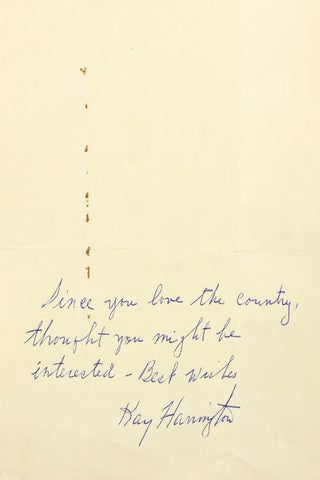 Since you love the country,
thought you might be
interested - Best wishes
Kay Harrington